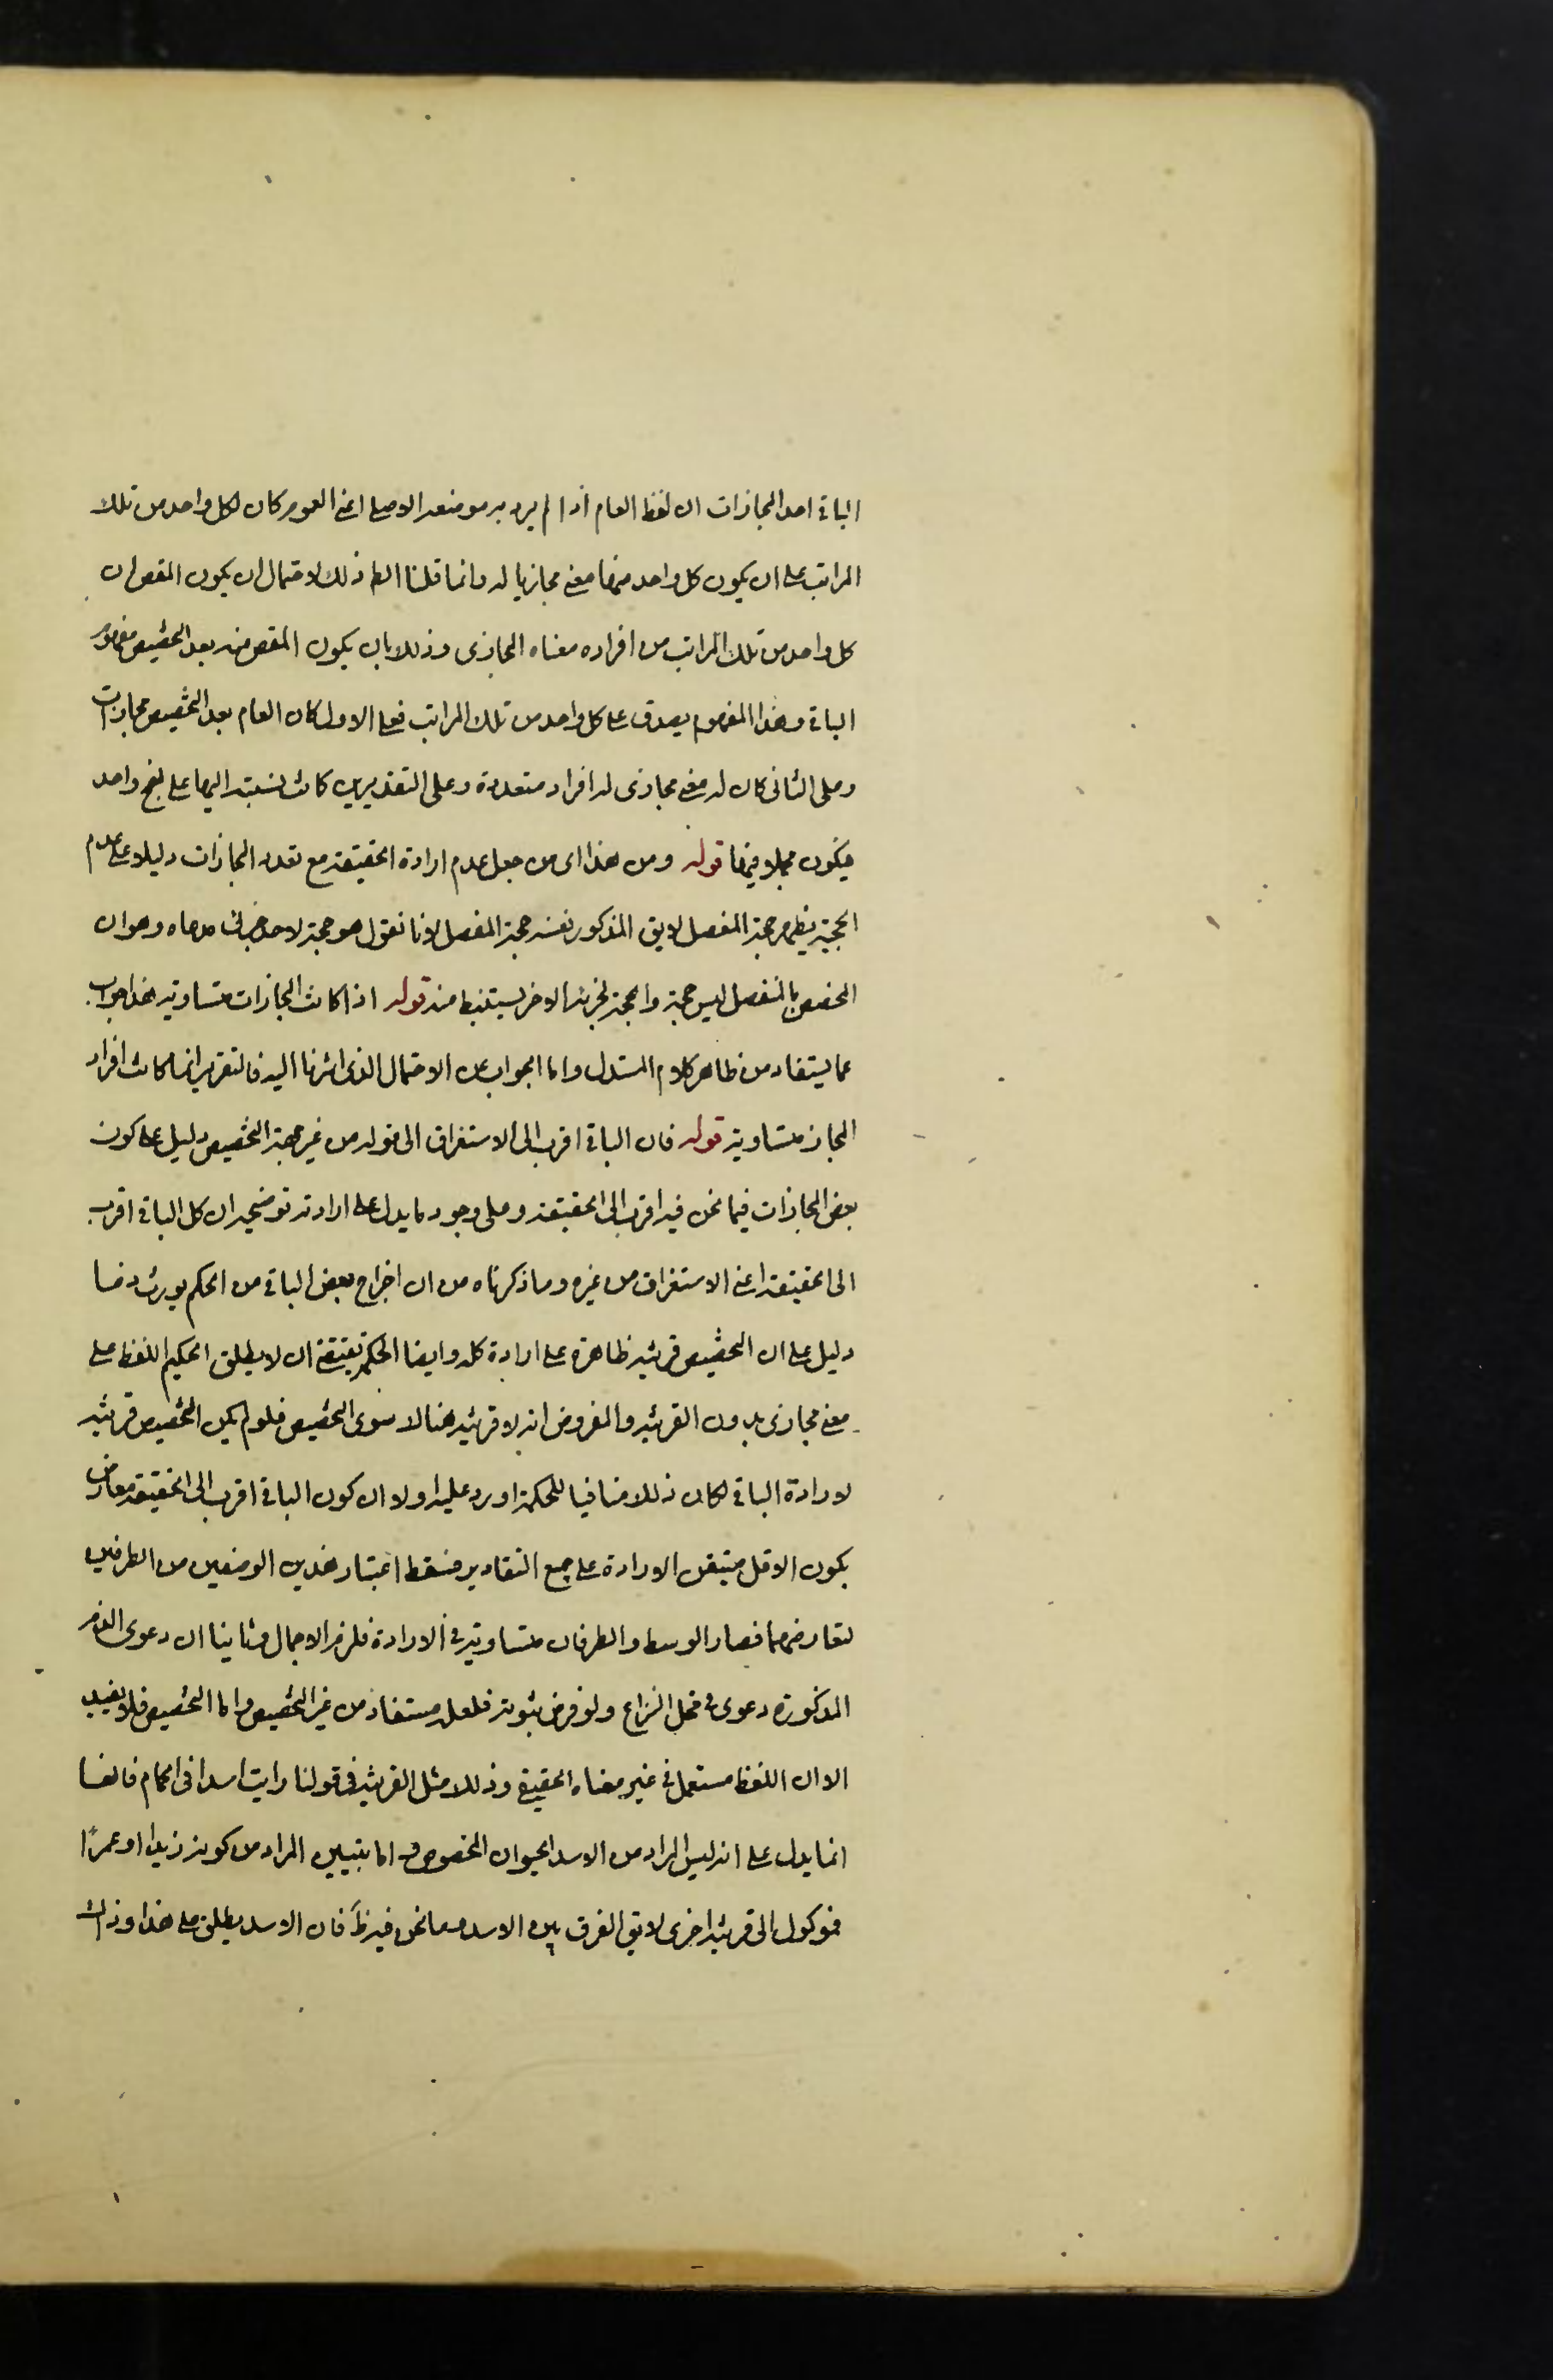 الباقى احد المجازات ان لفظ العام اذا لم يرد به موضعه الاصلى اعنى العموم كان لكل واحد من تلك
المراتب على ان يكون كل واحد منها معنى مجازيا له وانما قلنا الظ ذلك لاحتمال ان يكون المقص ان
كل واحد من تلك المراتب من افراده معناه المجازى وذلك بان يكون المقص منه بعد التخصيص مفهوم
الباقى وهذا المفهوم يصدق على كل واحد من تلك المراتب فعلى الاول كان العام بعد التخصيص مجازات
وعلى الثانى كان له معنى مجازى له افراد متعددة وعلى التقديرين كانت نسبته اليها على نهج واحد
فيكون مجملا فيها قوله ومن هذا اى من جعل عدم ارادة الحقيقة مع تعدد المجازات دليلا على عدم
الحجية يظهر حجة المفصل لايق المذكور نفسه حجة المفصل لانا نقول هو حجة لاحد جزئى مدعاه وهو ان
المخصص بالمنفصل ليس حجة والحجة لجزئه الاخر يستنبط منه قوله اذا كانت المجازات متساوية هذا جواب
عما يستفاد من ظاهر كلام المستدل واما الجواب عن الاحتمال الذى اشرنا اليه فالتقرير انما كانت افراد
المجاز متساوية قوله فان الباقى اقرب الى الاستغراق الى قوله من غير جهة التخصيص دليل على كون
بعض المجازات فيما نحن فيه اقرب الى الحقيقة وعلى وجود ما يدل على ارادته توضيحه ان كل الباقى اقرب
الى الحقيقة اعنى الاستغراق من غيره وما ذكرناه من ان اخراج بعض الباقى من الحكم يورث دضا
دليل على ان التخصيص قرينة ظاهرة على ارادة كله وايضا الحكمة يقتضى ان لا يطلق الحكيم اللفظ على
معنى مجازى بدون القرينة والمفروض انه لا قرينة هنالا سوى التخصيص فلو لم يكن التخصيص قرينة
لارادة الباقى لكان ذلك منافيا للحكمة اورد عليه اولا ان كون الباقى اقرب الى الحقيقة معارض
بكون الاقل متيقن الارادة على جميع التقادير فسقط اعتبار هذين الوضعين من الطرفين
لتعارضهما فصار الوسط والطرفان متساوية فى الارادة فلزم الاجمال وثانيا ان دعوى الظهر
المذكورة دعوى فى محل النزاع ولو فرض ثبوته فلعله مستفاد من غير التخصيص واما التخصيص فلا يفيد
الا ان اللفظ مستعمل فى غير معناه الحقيقى وذلك مثل القرينة فى قولنا رايت اسدا فى الحمام فانها
انما يدل على انه ليس المراد من الاسد الحيوان المخصوص واما تبيين المراد من كونه زيدا او عمرًا
فموكول الى قرينة اخرى لايق الفرق بين الاسد وما نحن فيه ظ فان الاسد يطلق على هذا وذاك